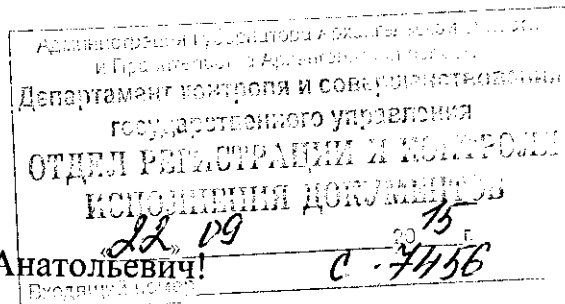 Администрация Губернатора Архангельской области
и Правительства Архангельской области
Департамент контроля и совершенствования
государственного управления
ОТДЕЛ РЕГИСТРАЦИИ И КОНТРОЛЯ
ИСПОЛНЕНИЯ ДОКУМЕНТОВ
«22» 09 2015 г.
Анатольевич!
Входящий номер С-7456